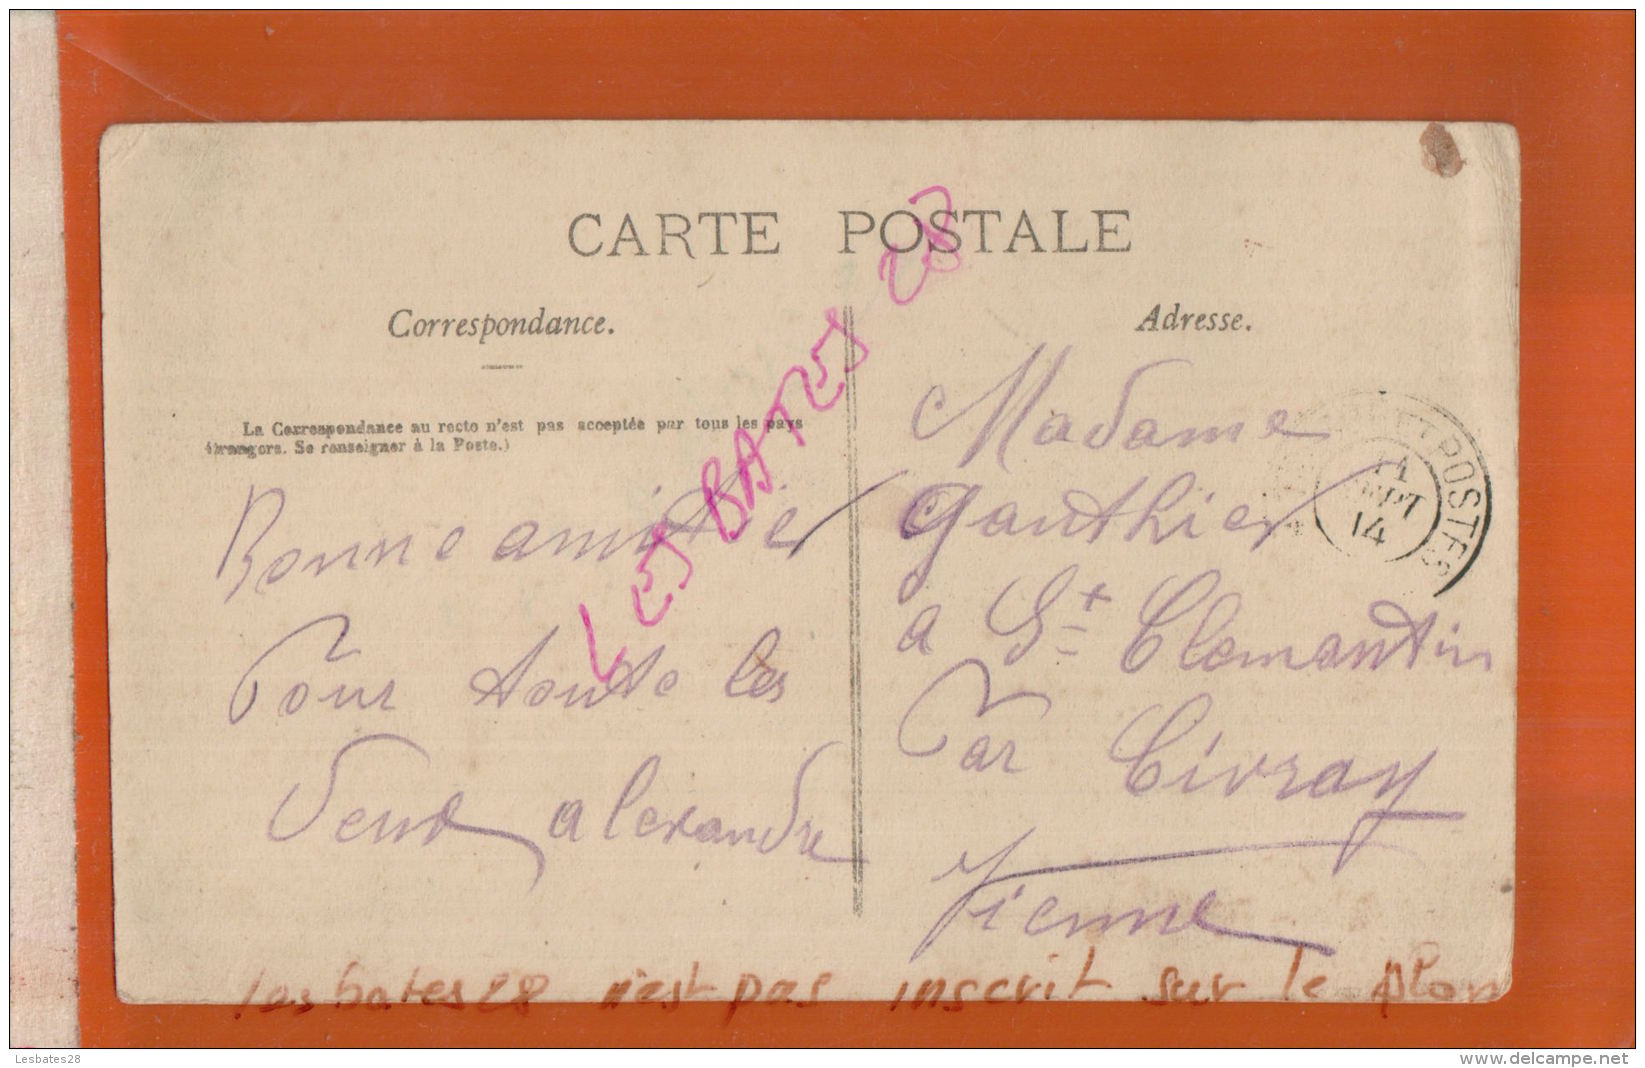 CARTE POSTALE
Correspondance.
Adresse.
La Correspondance au recto n'est pas acceptée par tous les pays
étrangers. Se renseigner à la Poste.)
Bonne amitier
Pour toute les
Deux alexandre
Madame
Gauthier
a St Clemantin
Par Civray
Vienne
ET POSTES
11
SEPT
14
LESBATES 28
lesbates28 n'est pas inscrit sur le
Lesbates28
www.delcampe.net